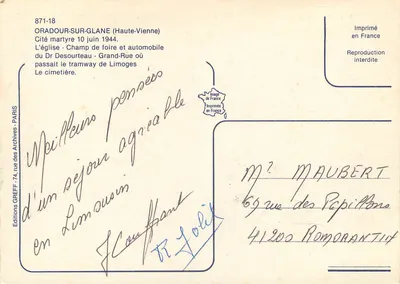 871-18
ORADOUR-SUR-GLANE (Haute-Vienne)
Cité martyre 10 juin 1944.
L'église - Champ de foire et automobile
du Dr Desourteau - Grand-Rue où
passait le tramway de Limoges
Le cimetière.
Imprimé
en France
Reproduction
interdite
Image
de France
Imprimée
en France
Editions GREFF - 74, rue des Archives - PARIS
Meilleurs pensées
d'un séjour agréable
en Limousin
R Jolis
Mr MAUBERT
69 rue des Papillons
41200 ROMORANTIN